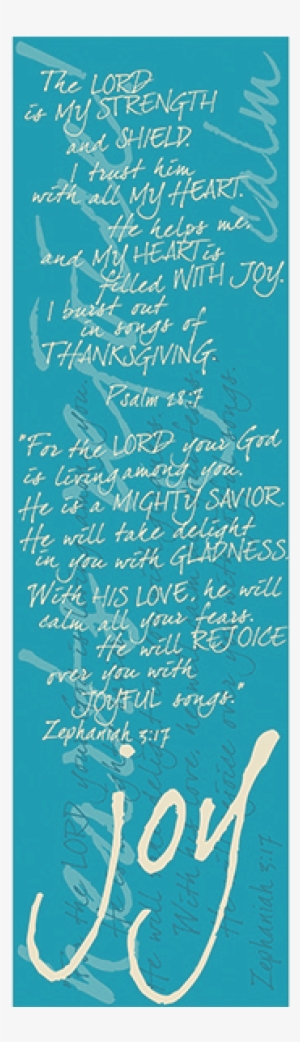 The LORD
is MY STRENGTH
and SHIELD.
I trust him
with all MY HEART.
He helps me,
and MY HEART is
filled WITH JOY.
I burst out
in songs of
THANKSGIVING.
Psalm 28:7
"For the LORD your God
is living among you.
He is a MIGHTY SAVIOR.
He will take delight
in you with GLADNESS.
With HIS LOVE, he will
calm all your fears.
He will REJOICE
over you with
JOYFUL songs."
Zephaniah 3:17
joy
calm
Zephaniah 3:17